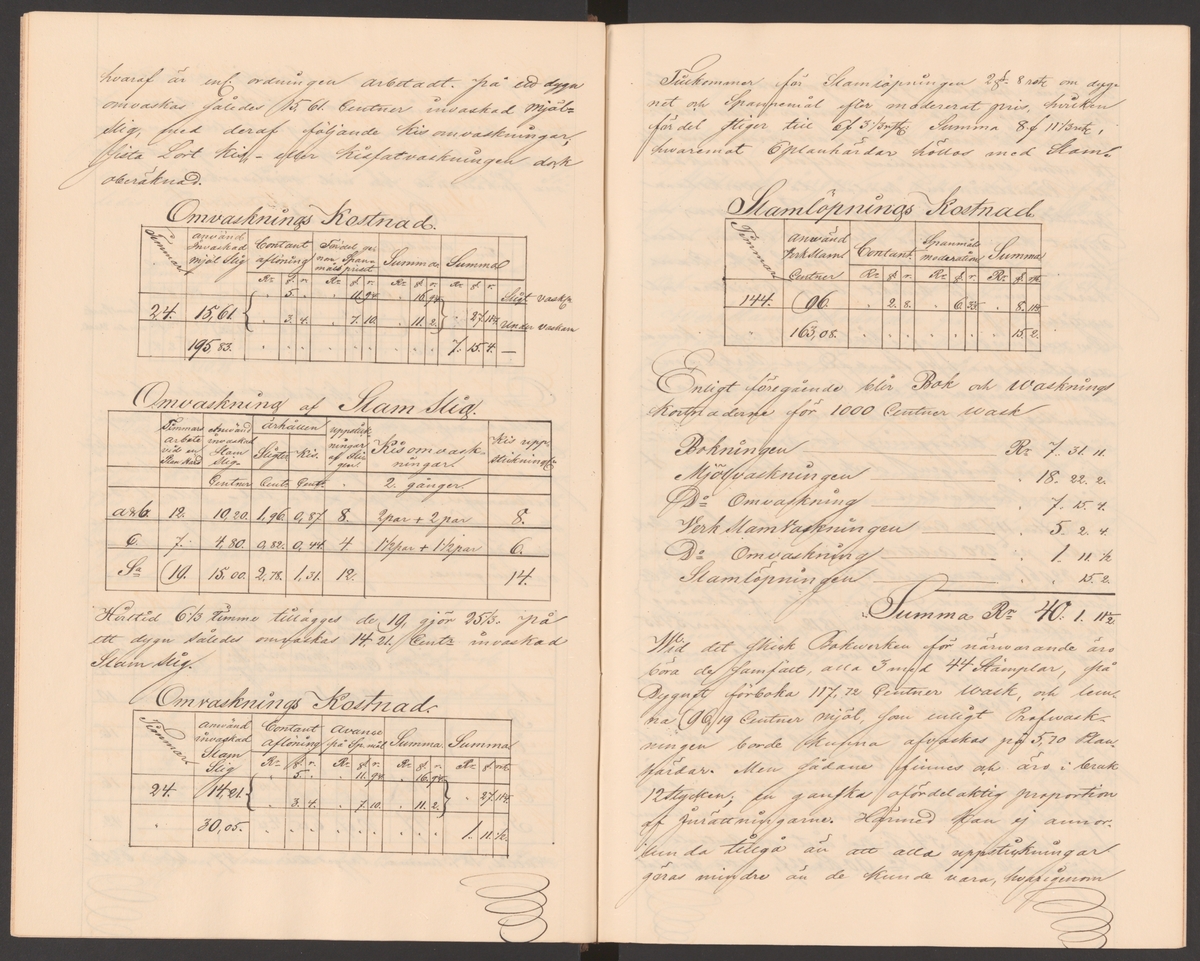 hvaraf är enl. ordningen arbetadt. På ett dygn
omvaskas således 15,61. Centner invaskad mjöl-
slig, med deraf följande kisomvaskningar,
sista Lort Kis- eller Kisfatvaskningen dock
oberäknad.
Omvasknings Kostnad.
Timmar använd invaskad mjöl Slig Contant aflöning Summa Summa
Rr. f. r. Rr. f. r. Rr. f. r. Rr. f. r.
5. 11.94. 16.94. Sligt vaskn
24. 15,61. 3. 4. 7. 10. 11. 2. 27. 11½ Under vasken
195,83. 7. 15. 4. —
Omvaskning af Slam Slig.
Timmars arbete vid en Använd invaskad Slam Slig. ärhållen Sligter Kis. uppstick ningar af Sli gen. Kisomvask- ningar. Kis upp- stickning
Centner Cent. Cent. 2. gånger.
a & b. 12. 10,20. 1,96. 0,87. 8. 2 par + 2 par 8.
c. 7. 4,80. 0,82. 0,44. 4. 1½ par + 1½ par 6.
Sa 19. 15,00. 2,78. 1,31. 12. 14.
Hvilstid 6⅓ Timme tillägges de 19, gjör 25⅓. På
ett dygn således omvaskas 14,21. Centr invaskad
Slam slig.
Omvasknings Kostnad.
Timmar använd invaskad Slam Slig Contant aflöning Avance på Sp.mål Summa. Summa
Rr. f. r. Rr. f. r. Rr. f. r. Rr. f. r.
5. 11.94. 16.94.
24. 14,21. 3. 4. 7. 10. 11. 2. 27. 11½
30,05. 1. 11.½
Tillkommer för Slamlöpningen 2 f. 8 rst. om dyg-
net och Spannemål efter modererat pris, hvilken
fördel stiger till 6 f 3⅓ rst; Summa 8. f 11⅓ rst,
hvaremot 6 planhärdar hållas med Slam.
Slamlöpnings Kostnad
Timmar använd Verk Slam Contant Spanmåls moderation Summa
Centner Rr. f. r. Rr. f. r. Rr. f. rst.
144. 96. 2. 8. 6. 3⅓. 8. 11⅓
163,08. 15. 2.
Enligt föregående blir Bok och Wasknings
kostnaderne för 1000 Centner Wask
Bokningen Rr. 7. 31. 11.
Mjölvaskningen 18. 22. 2.
Do Omvaskning 7. 15. 4.
Verk Slamvaskningen 5. 2. 4.
Do Omvaskning 1. 11. ½
Slamlöpningen 15. 2.
Summa Rr 40. 1. 11½
Wid det Bokverken för närvarande äro
böra de samfält, alla 3 med 44 Stämplar, på
Dygnet förboka 117,72 Centner Wask, och lem-
na 96,19 Centner mjöl, som enligt Profwask-
ningen borde kunna afvaskas på 5,70 Plan-
härdar. Men sådane finnes och äro i bruk
12 stycken; en ganska ofördelaktig proportion
af Inrättningarne. Härmed kan ej annor-
lunda tillgå än att alla uppstickningar
göras mindre än de kunde vara, hvarigenom